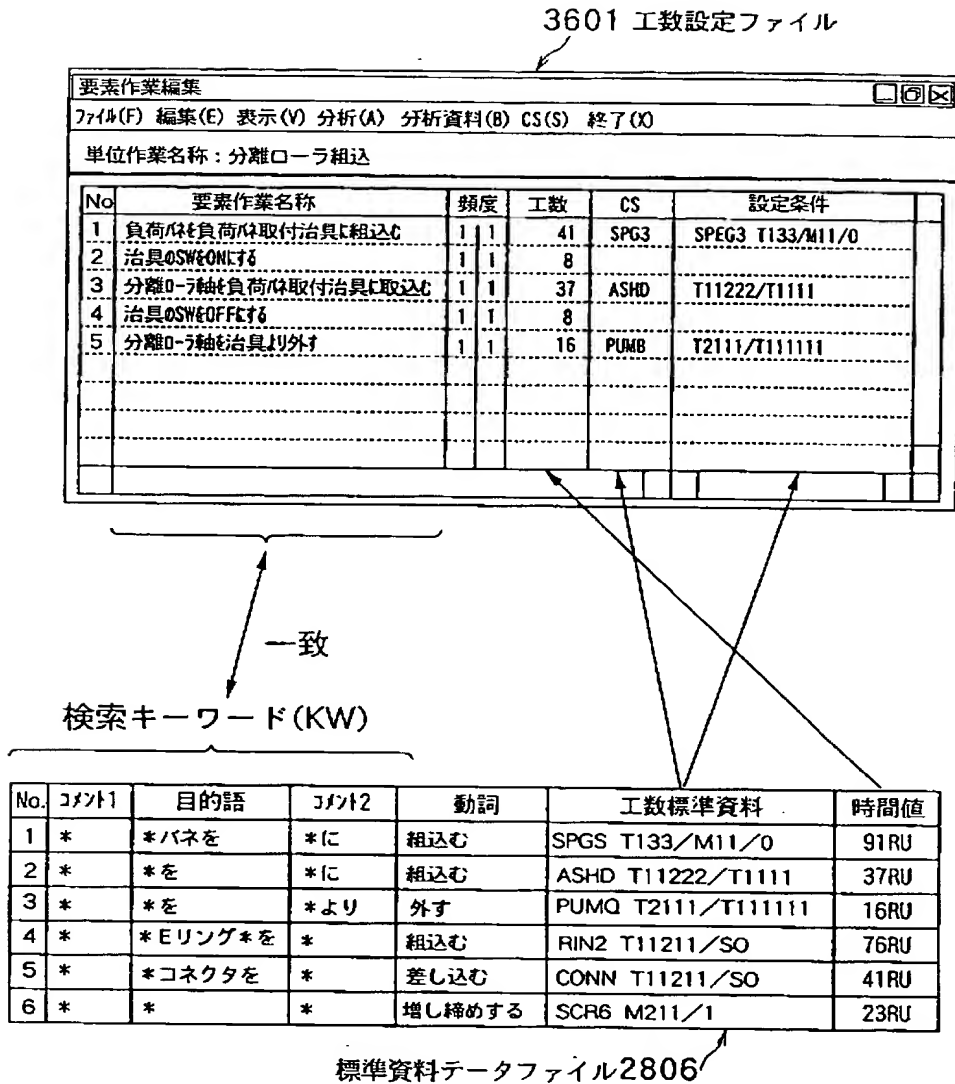 3601 工数設定ファイル
要素作業編集
ファイル(F) 編集(E) 表示(V) 分析(A) 分析資料(B) CS(S) 終了(X)
単位作業名称：分離ローラ組込
No 要素作業名称 頻度 工数 CS 設定条件
1 負荷バネを負荷バネ取付治具に組込む 1 1 41 SPG3 SPEG3 T133/M11/0
2 治具のSWをONにする 1 1 8
3 分離ローラ軸を負荷バネ取付治具に取込む 1 1 37 ASHD T11222/T1111
4 治具のSWをOFFにする 1 1 8
5 分離ローラ軸を治具より外す 1 1 16 PUMB T2111/T111111
一致
検索キーワード(KW)
No. コメント1 目的語 コメント2 動詞 工数標準資料 時間値
1 * *バネを *に 組込む SPGS T133/M11/0 91RU
2 * *を *に 組込む ASHD T11222/T1111 37RU
3 * *を *より 外す PUMQ T2111/T111111 16RU
4 * *Eリング*を * 組込む RIN2 T11211/SO 76RU
5 * *コネクタを * 差し込む CONN T11211/SO 41RU
6 * * * 増し締めする SCR6 M211/1 23RU
標準資料データファイル2806